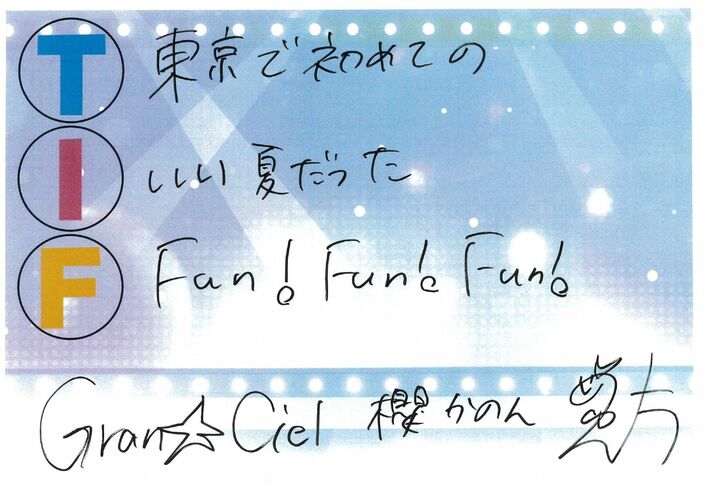 T 東京で初めての
I いい夏だった
F Fun! Fun! Fun!
Gran☆Ciel 櫻かのん